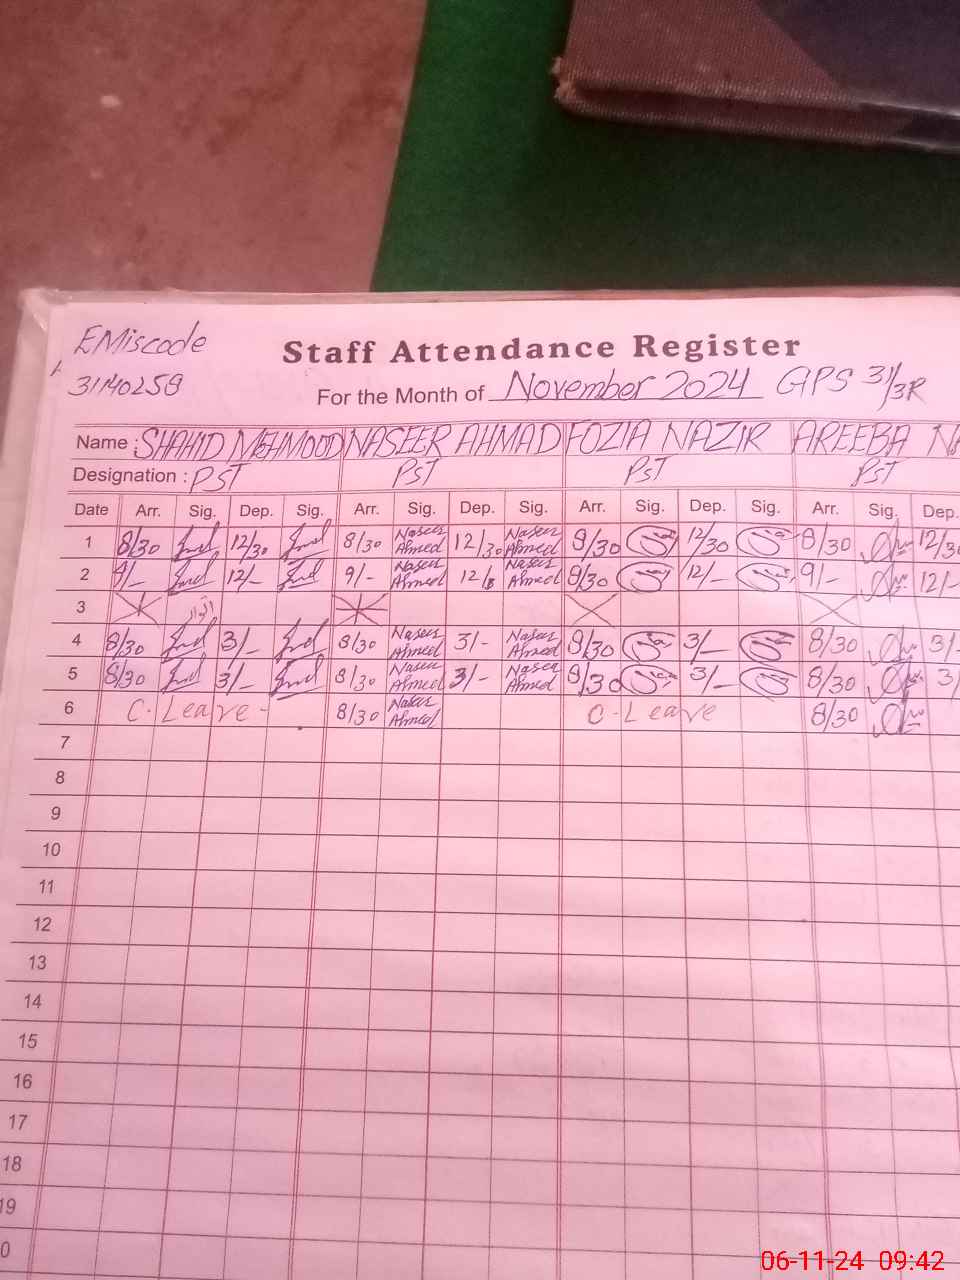 EMiscode
31140258
Staff Attendance Register
For the Month of November 2024 GPS 31/3R
Name : SHAHID MEHMOOD NASEER AHMAD FOZIA NAZIR AREEBA NA
Designation : PST PST PST PST
Date Arr. Sig. Dep. Sig. Arr. Sig. Dep. Sig. Arr. Sig. Dep. Sig. Arr. Sig. Dep.
1 8/30 12/30 8/30 Naseer Ahmed 12/30 Naseer Ahmed 8/30 12/30 8/30 12/30
2 9/- 12/- 9/- Naseer Ahmed 12/ Naseer Ahmed 8/30 12/- 9/- 12/-
3 اتوار
4 8/30 3/- 8/30 Naseer Ahmed 3/- Naseer Ahmed 8/30 3/- 8/30 3/-
5 8/30 3/- 8/30 Naseer Ahmed 3/- Naseer Ahmed 8/30 3/- 8/30 3/
6 C. Leave - 8/30 Naseer Ahmed C. Leave 8/30
7
8
9
10
11
12
13
14
15
16
17
18
19
0
06-11-24 09:42